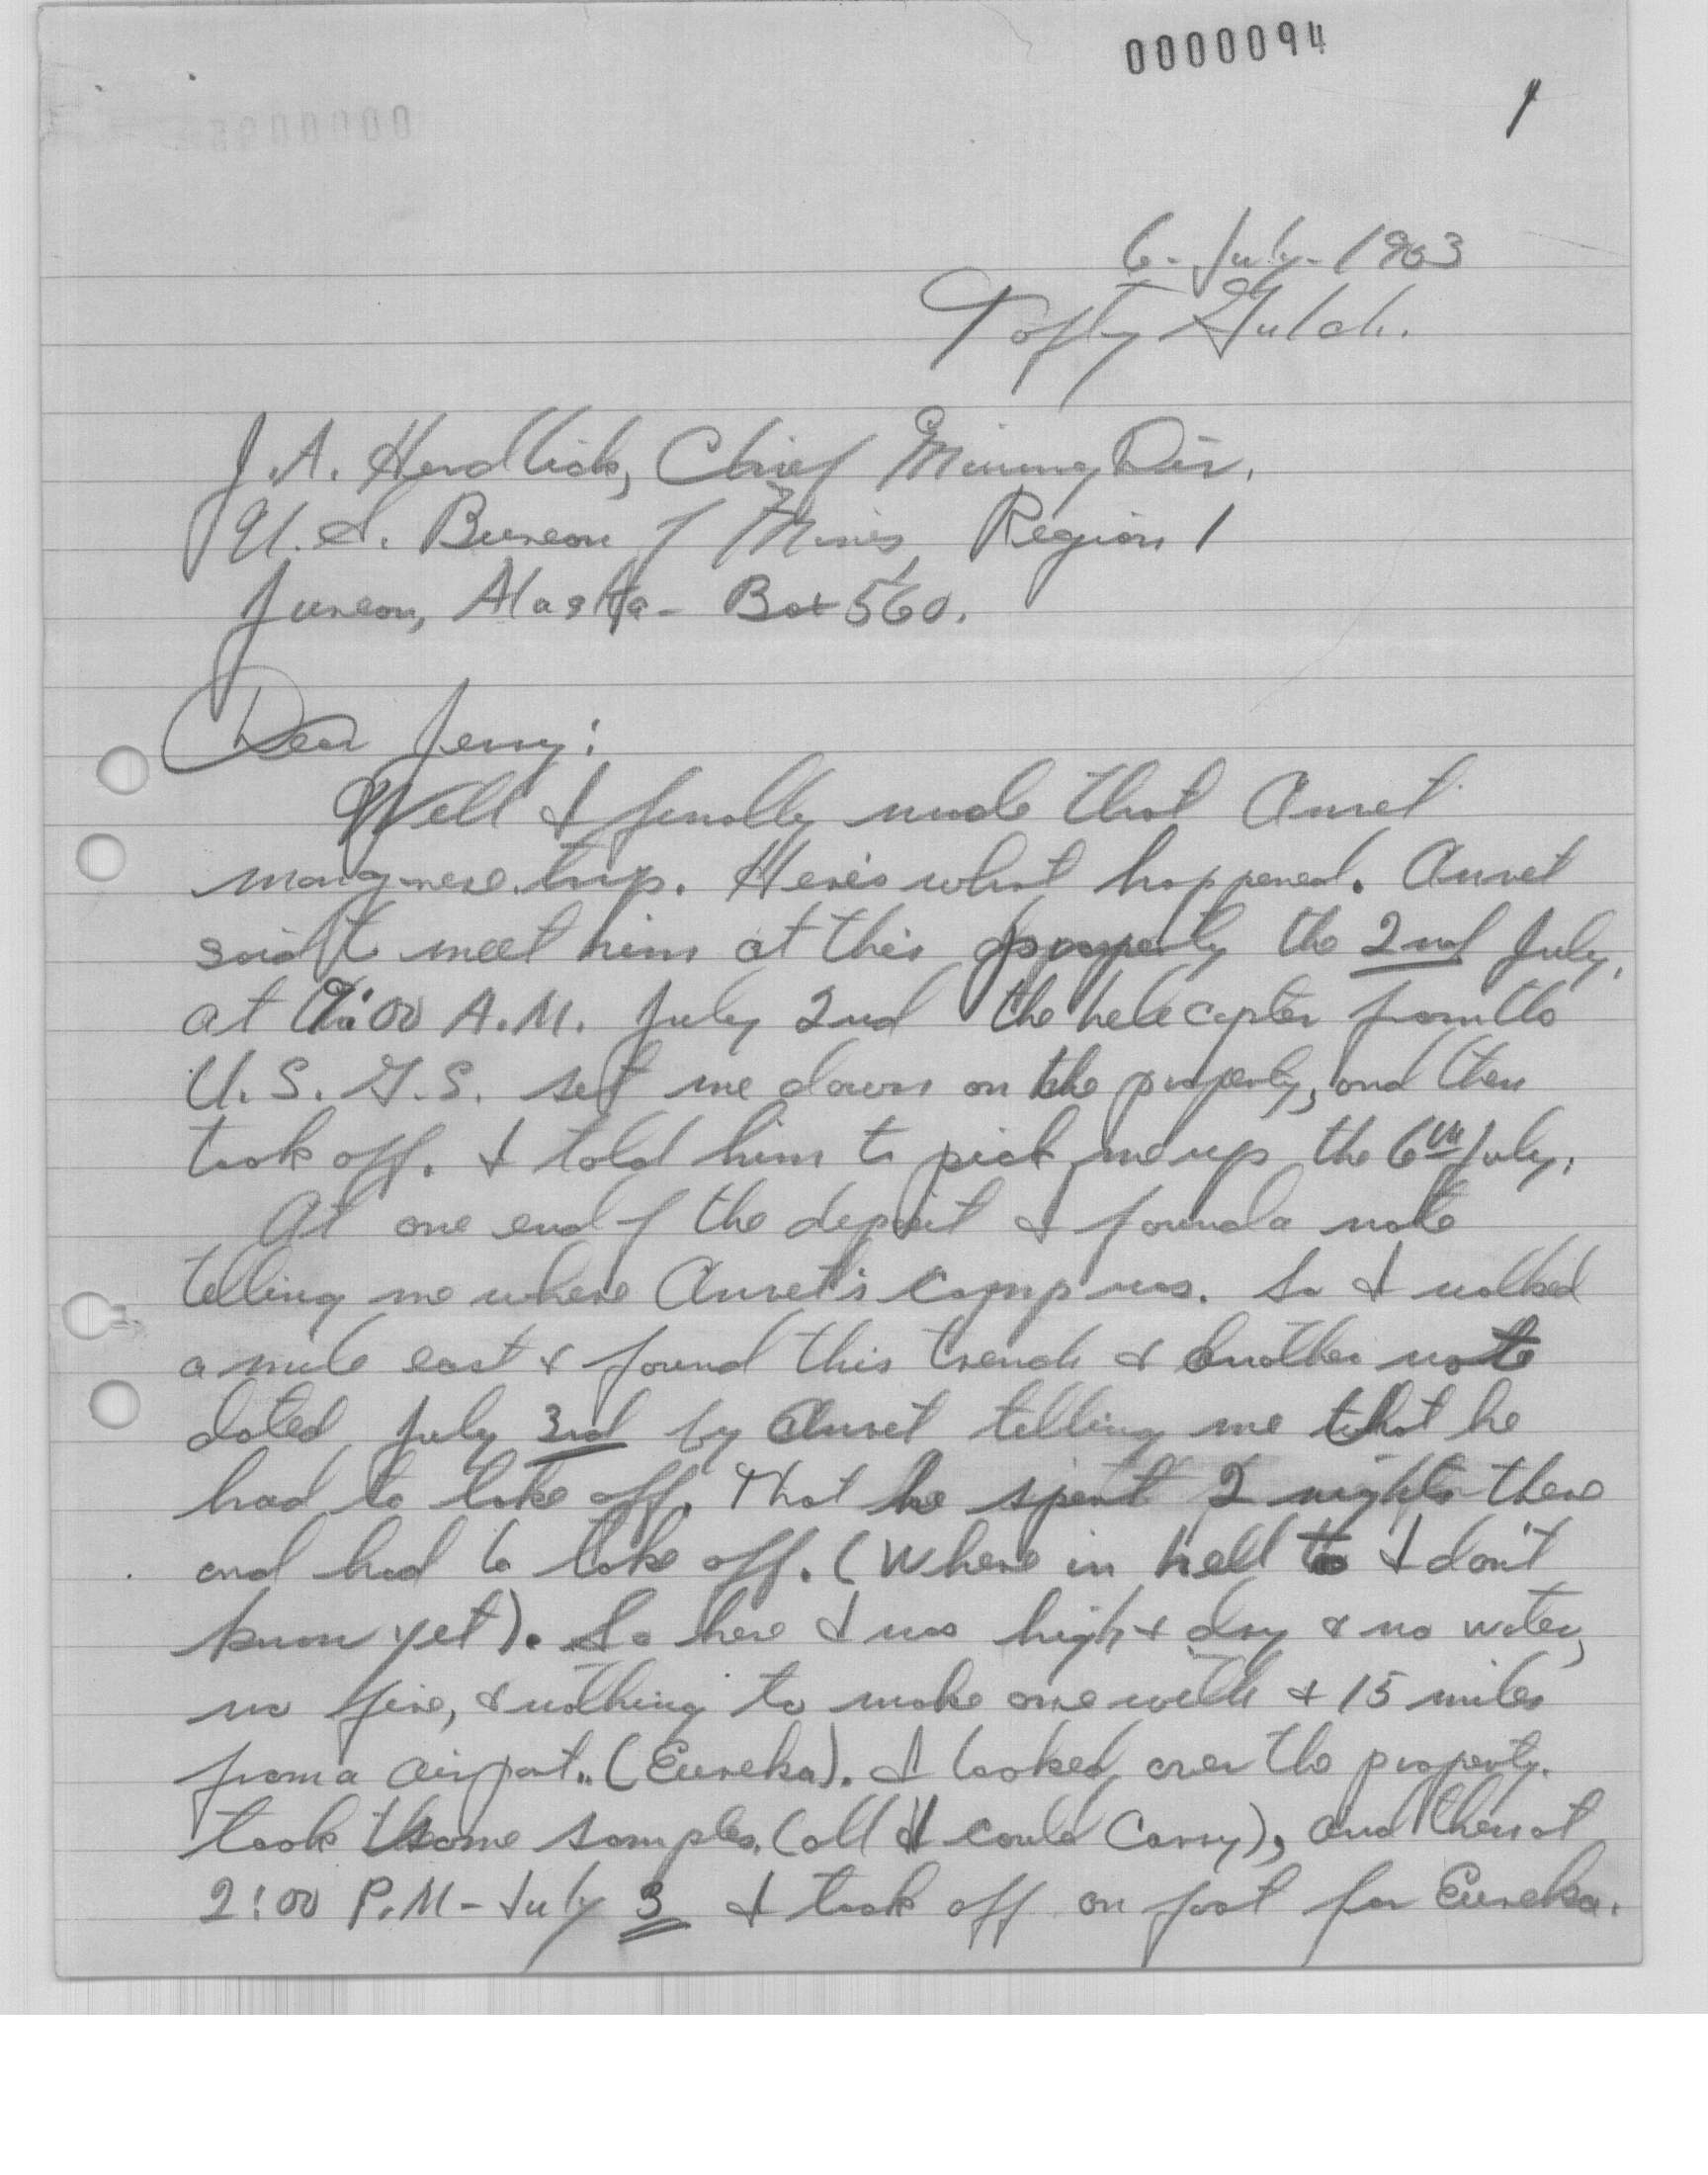 0000094
1
6-July-1963
Tofty Gulch.
J. A. Herdlick, Chief Mining Div.
U. S. Bureau of Mines, Region 1
Juneau, Alaska - Box 560.
Dear Jerry:
Well I finally made that
manganese trip. Here's what happened.
said to meet him at this property the 2nd July,
at 9:00 A.M. July 2nd the helecopter from the
U. S. G. S. set me down on the property, and then
took off. I told him to pick me up the 6th July.
At one end of the deposit I found a note
telling me where camp was. So I walked
a mile east & found this trench & another note
dated July 3rd by telling me that he
had to take off. That he spent 2 nights there
and had to take off. (Where in hell to I don't
know yet). So here I was high & dry & no water,
no fire, & nothing to make one with & 15 miles
from a airport.. (Eureka). I looked over the property.
took some samples. (all I could carry), and then at
2:00 P.M - July 3 I took off on foot for Eureka.